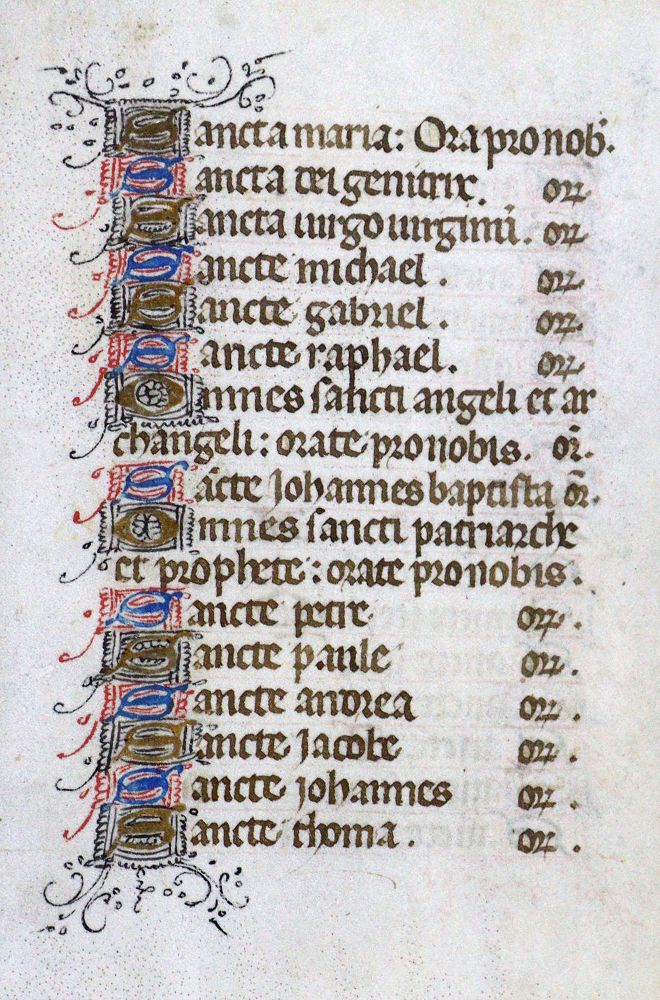 Sancta maria: Ora pro nob̕.
Sancta dei genitrix. orꝛ
Sancta uirgo uirginū. orꝛ
Sancte michael. orꝛ
Sancte gabriel. orꝛ
Sancte raphael. orꝛ
Omnes sancti angeli et ar
changeli: orate pro nobis. or̄.
Sācte Johannes baptista or̄.
Omnes sancti patriarche
et prophete: orate pro nobis.
Sancte petre orꝛ.
Sancte paule orꝛ.
Sancte andrea orꝛ.
Sancte Jacobe orꝛ.
Sancte iohannes orꝛ.
Sancte thoma. orꝛ.